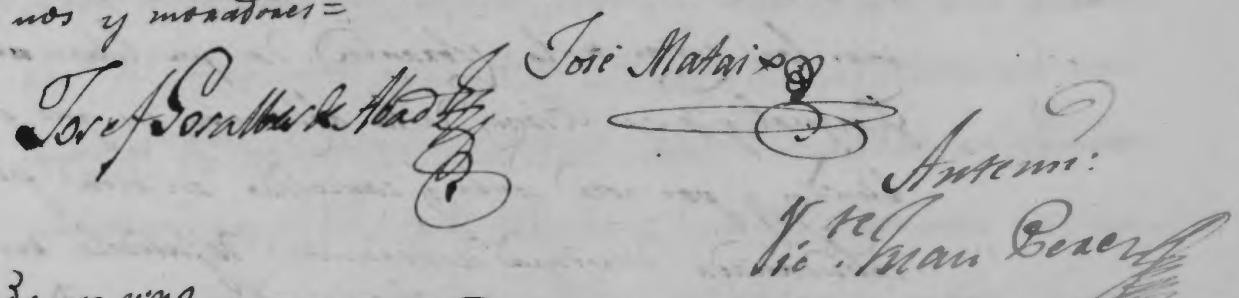 nos y moradores=
Josef Gosalbes de Abad
José Mataix
Antemi:
Vic.te Juan Perez